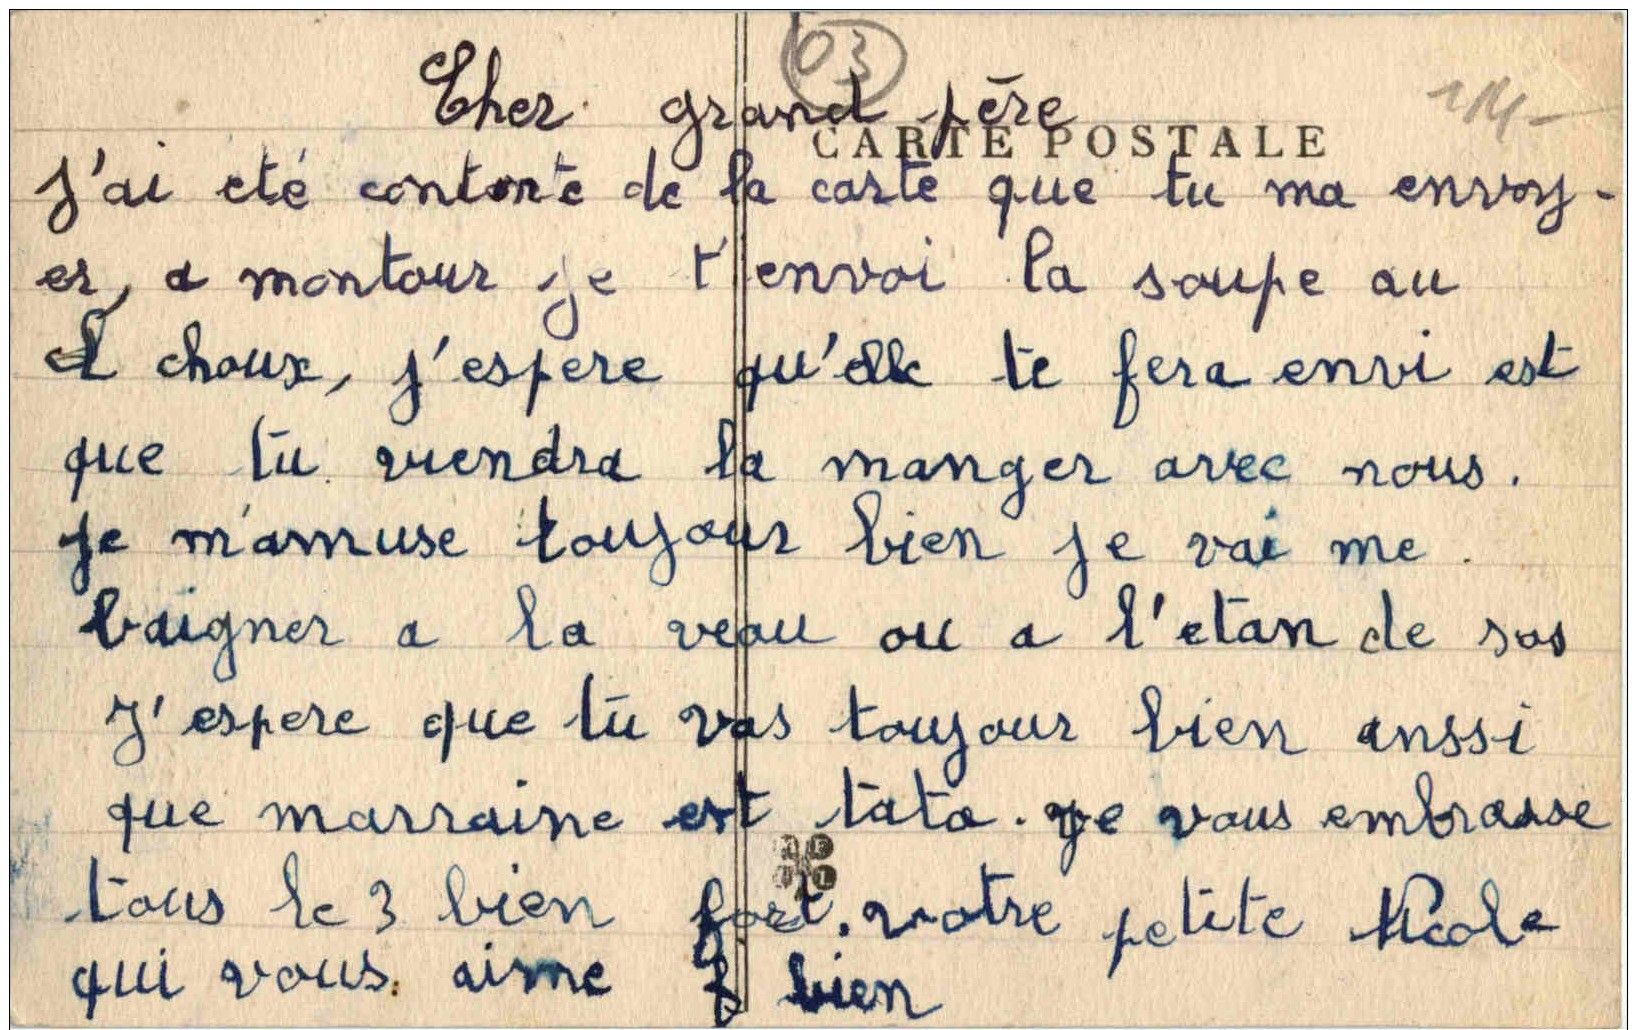 03
114-
Cher grand père
CARTE POSTALE
J'ai eté contente de la carte que tu ma envoy-
er, a montour je t'envoi la soupe au
choux, j'espere qu'elle te fera envi est
que tu viendra la manger avec nous.
je m'amuse toujour bien je vai me
baigner a la veau ou a l'etan de sos
J'espere que tu vas toujour bien anssi
que marraine est tata. je vous embrasse
tous le 3 bien fort. votre petite Nicole
qui vous aime bien